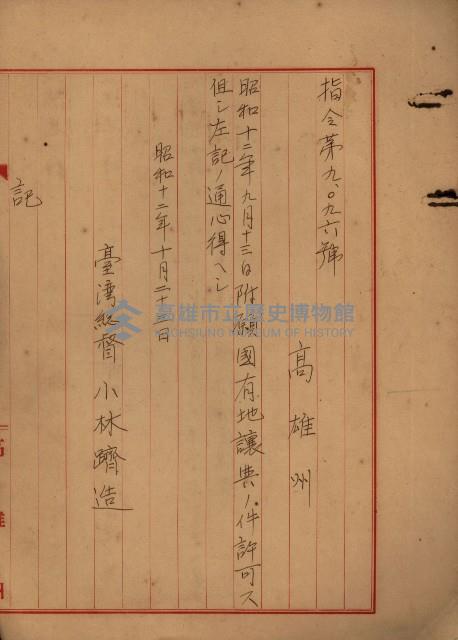 指令第九〇九六號
高雄州
昭和十二年九月十三日附願國有地讓與ノ件許可ス
但シ左記ノ通心得ヘシ
昭和十二年十月二十三日
臺灣総督 小林躋造
記
高雄州
高雄市立歷史博物館
KAOHSIUNG MUSEUM OF HISTORY